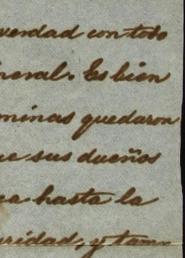 verdad con todo
neral. Es bien
minas quedaron
ue sus dueños
ca hasta la
ridad, y tam-